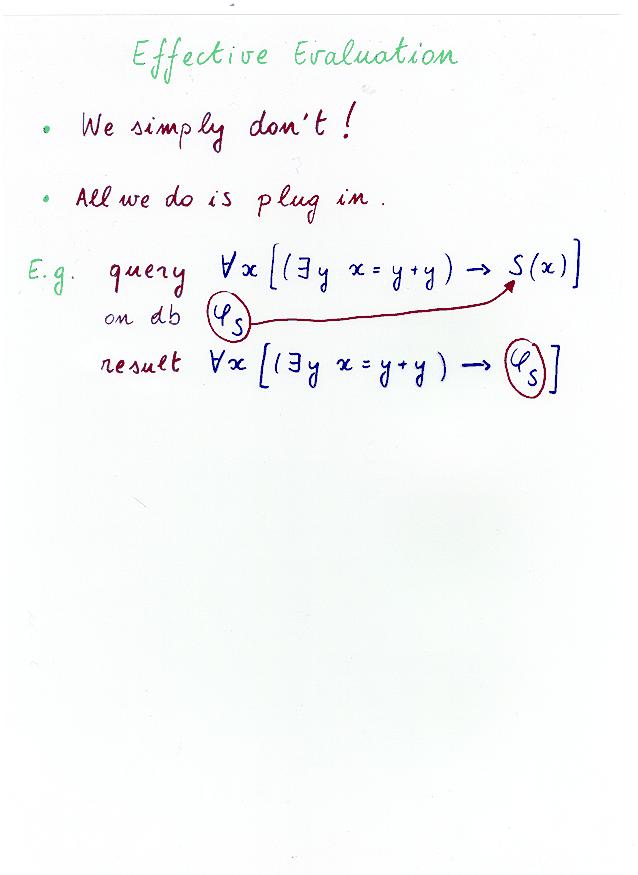 Effective Evaluation
• We simply don't!
• All we do is plug in.
E.g. query ∀x [(∃y x = y + y) → S(x)]
on db φ_S
result ∀x [(∃y x = y + y) → φ_S]